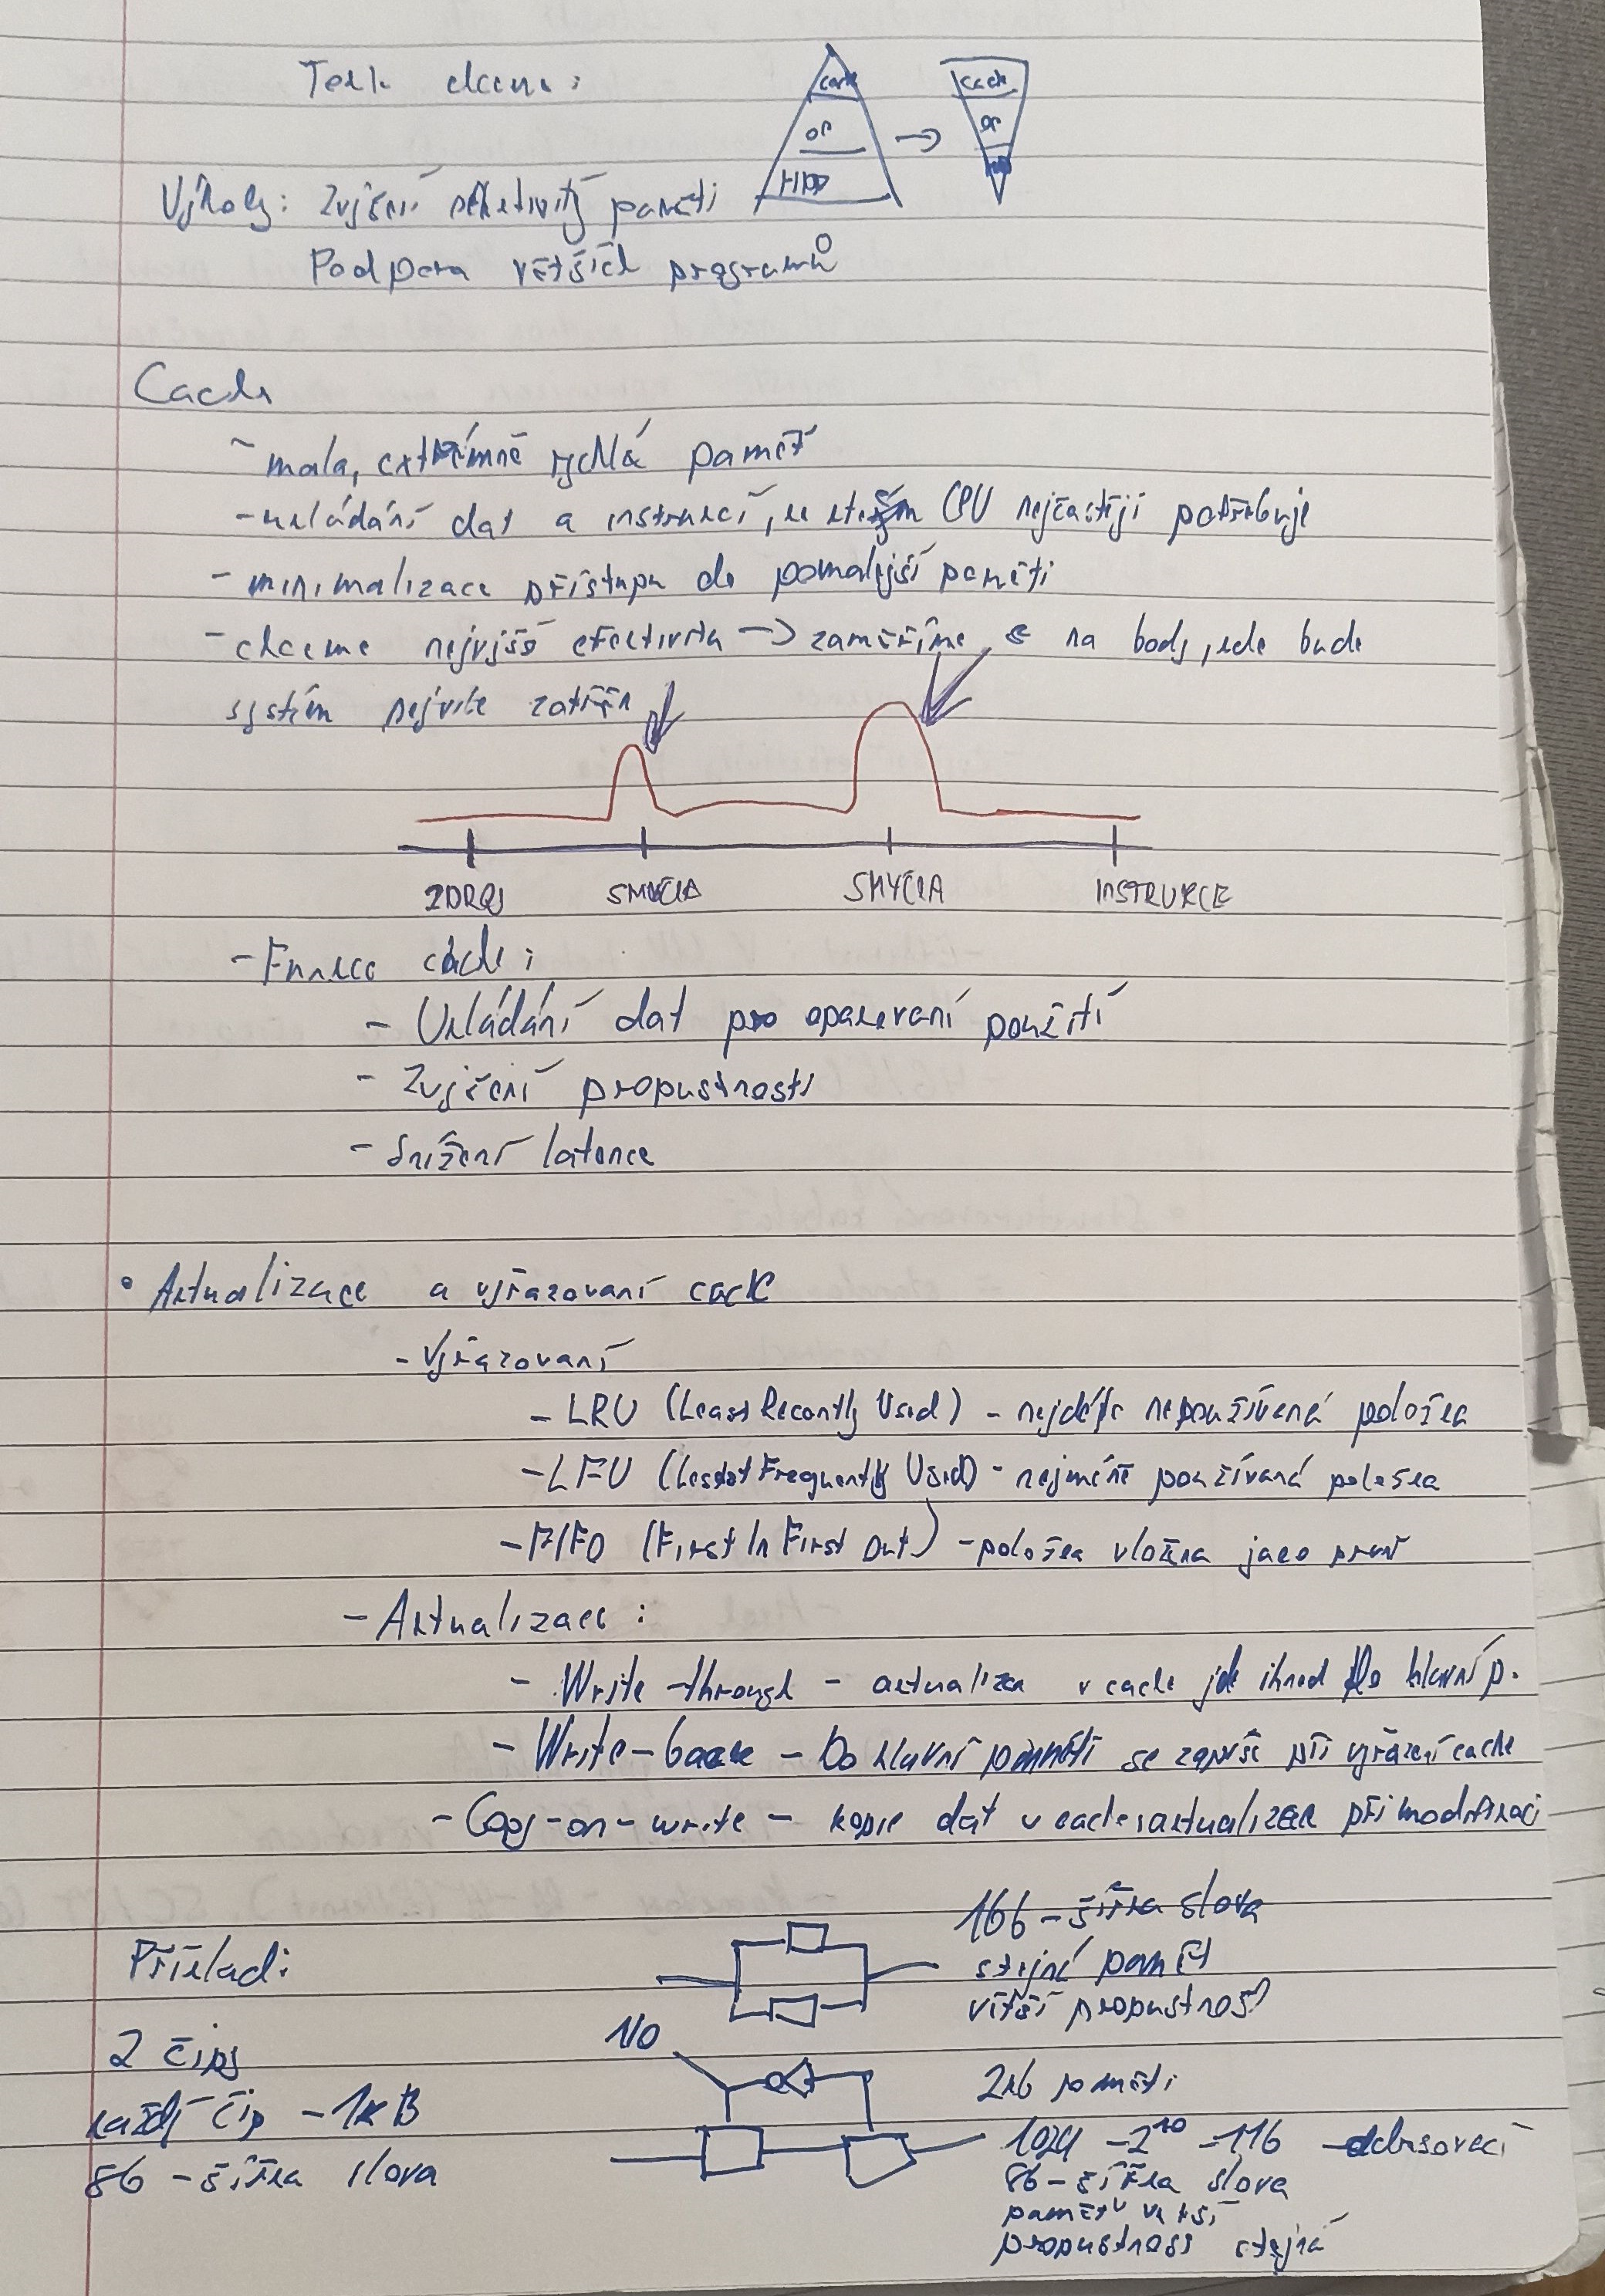 Teek chceme:
cache
OP
HDD
→
cache
OP
Výhody: Zvýšení efektivity paměti
Podpora větších programů
Cache
- mala, extrémně rychlá paměť
- ukládání dat a instrukcí, ke kterým CPU nejčastěji potřebuje
- minimalizace přístupu do pomalejší paměti
- chceme nejvyšší efektivitu -> zaměříme se na body, kde bude
systém nejvíce zatížen
ZDROJ SMYČKA SMYČKA INSTRUKCE
- Funkce cache:
- Ukládání dat pro opakovaní použití
- Zvýšení propustnosti
- Snížení latence
• Aktualizace a vyřazovaní cache
- Vyřazovaní
- LRU (Least Recently Used) - nejdéle nepoužívaná položka
- LFU (Least Frequently Used) - nejméně používaná položka
- FIFO (First In First Out) - položka vložena jako první
- Aktualizace:
- Write-through - aktualizace v cache jde ihned do hlavní p.
- Write-back - Do hlavní paměti se zapíše při vyřazení cache
- Copy-on-write - kopie dat v cache aktualizace při modifikaci
Příklad:
16b - šířka slova
stejná paměť
větší propustnost
2 čipy
každý čip - 1kB
8b - šířka slova
1/0
2kb paměti
1024 - 2^10 - 11b - adresovací
8b - šířka slova
paměť větší
propustnost stejná